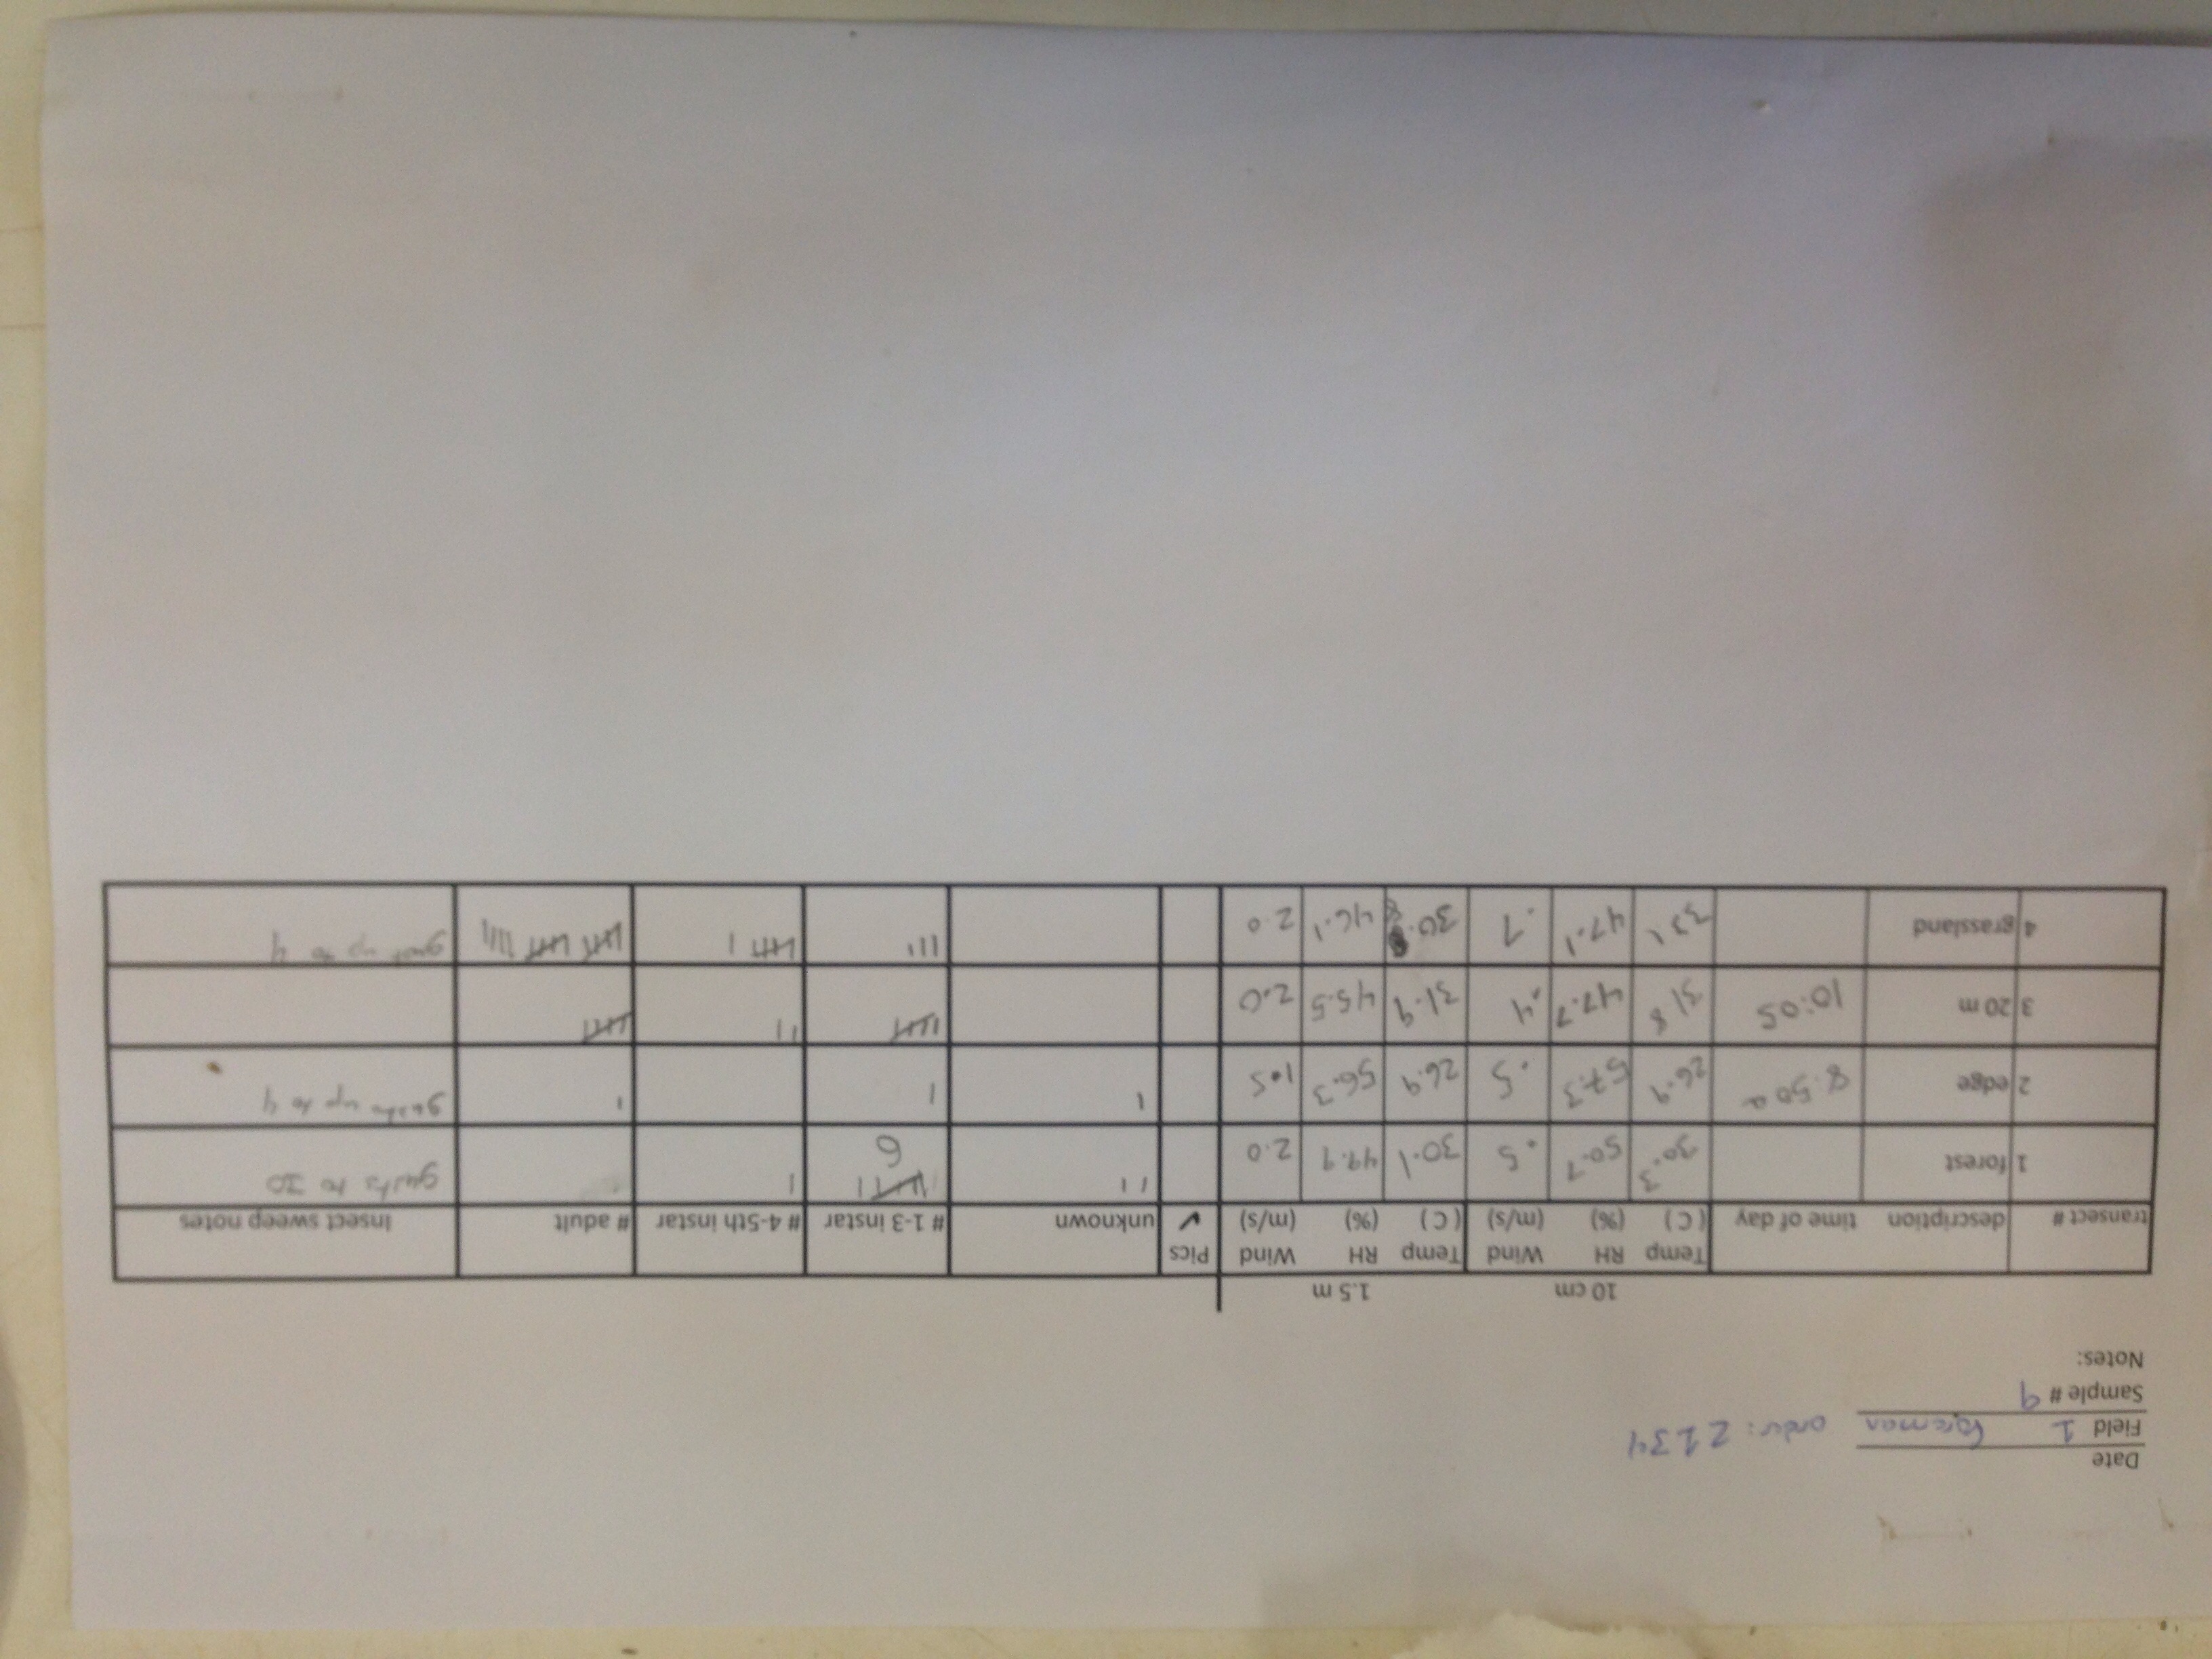 Date
Field 1 Foreman order: 2134
Sample # 9
Notes:
10 cm 1.5 m
transect # description time of day Temp (C) RH (%) Wind (m/s) Temp (C) RH (%) Wind (m/s) Pics ✔ unknown # 1-3 instar # 4-5th instar # adult Insect sweep notes
1 forest 30.3 50.7 .5 30.1 49.9 2.0 11 |||| | 6 | gusts to
2 edge 8:50a 26.9 57.3 .5 26.9 56.3 1.5 | | | gusts up to 4
3 20 m 10:05 31.8 47.7 .4 31.9 45.5 2.0 |||| || ||||
4 grassland 31.1 47.1 .7 30.8 46.1 2.0 ||| |||| | |||| |||| |||| gust up to 4